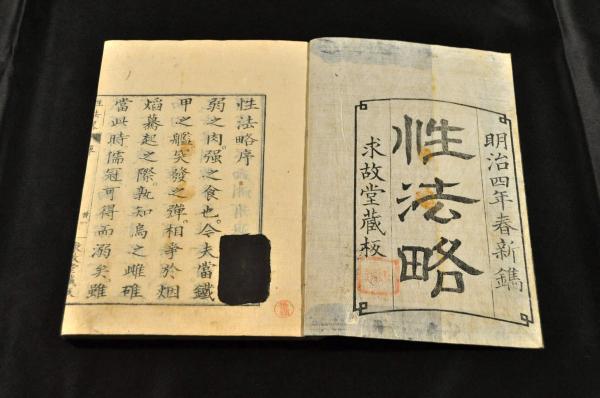 明治四年春新鐫
性法略
求故堂蔵板
性法略序
弱之肉强之食也今夫當鐵
甲之艦突發之彈相爭於烟
焰驀起之際孰知烏之雌雄
當此時儒冠可得而溺矣雖